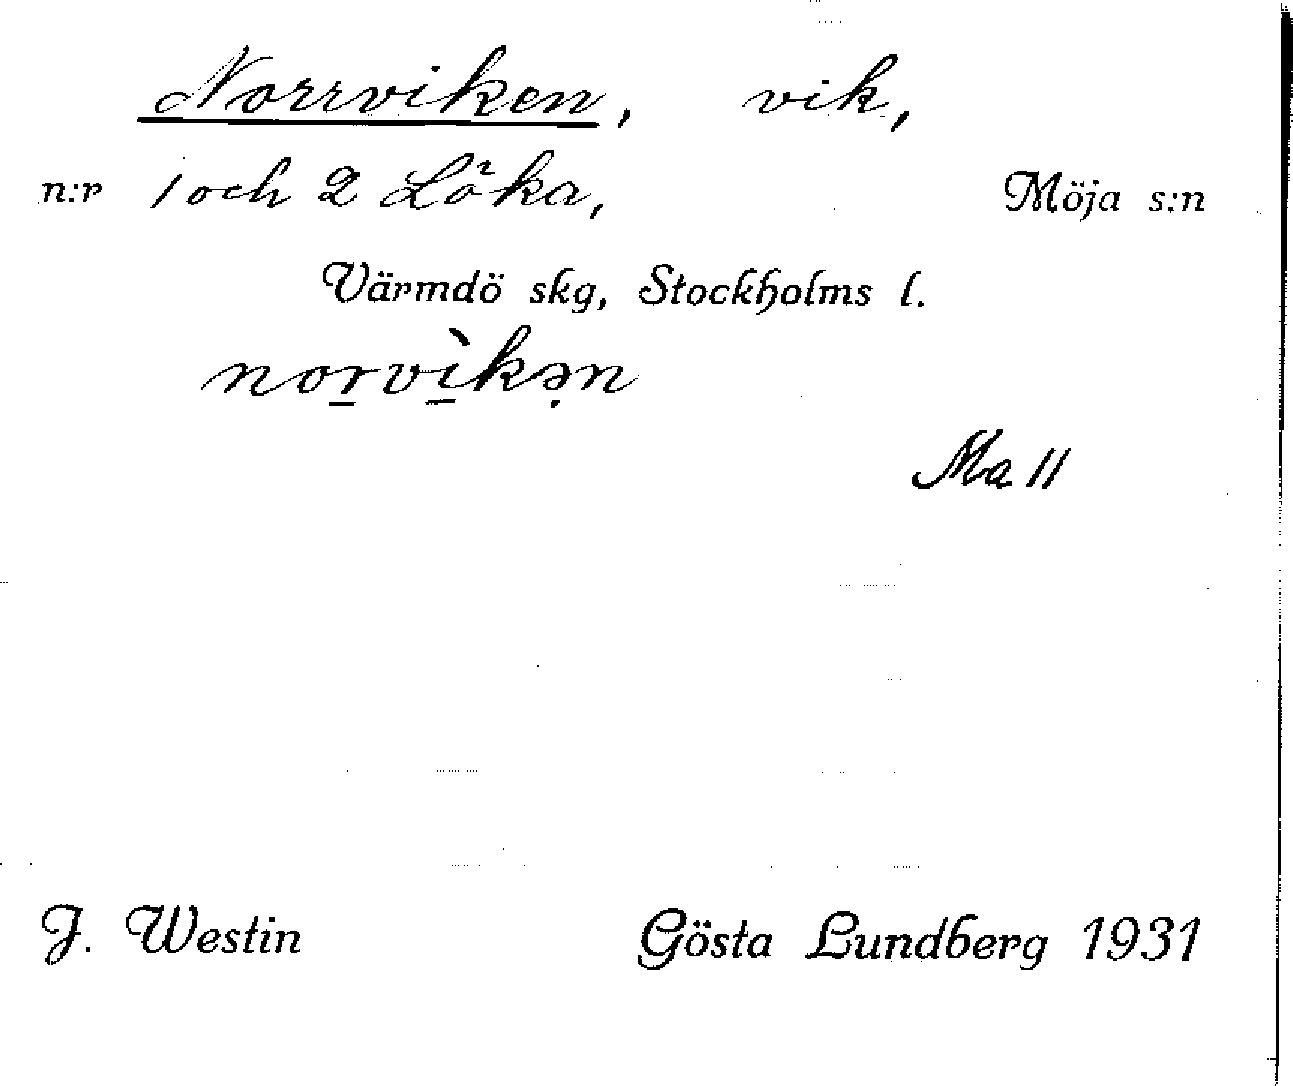 Norrviken, vik,
n:r 1 och 2 Löka, Möja s:n
Värmdö skg, Stockholms l.
norvìkən
Ma 11
J. Westin Gösta Lundberg 1931